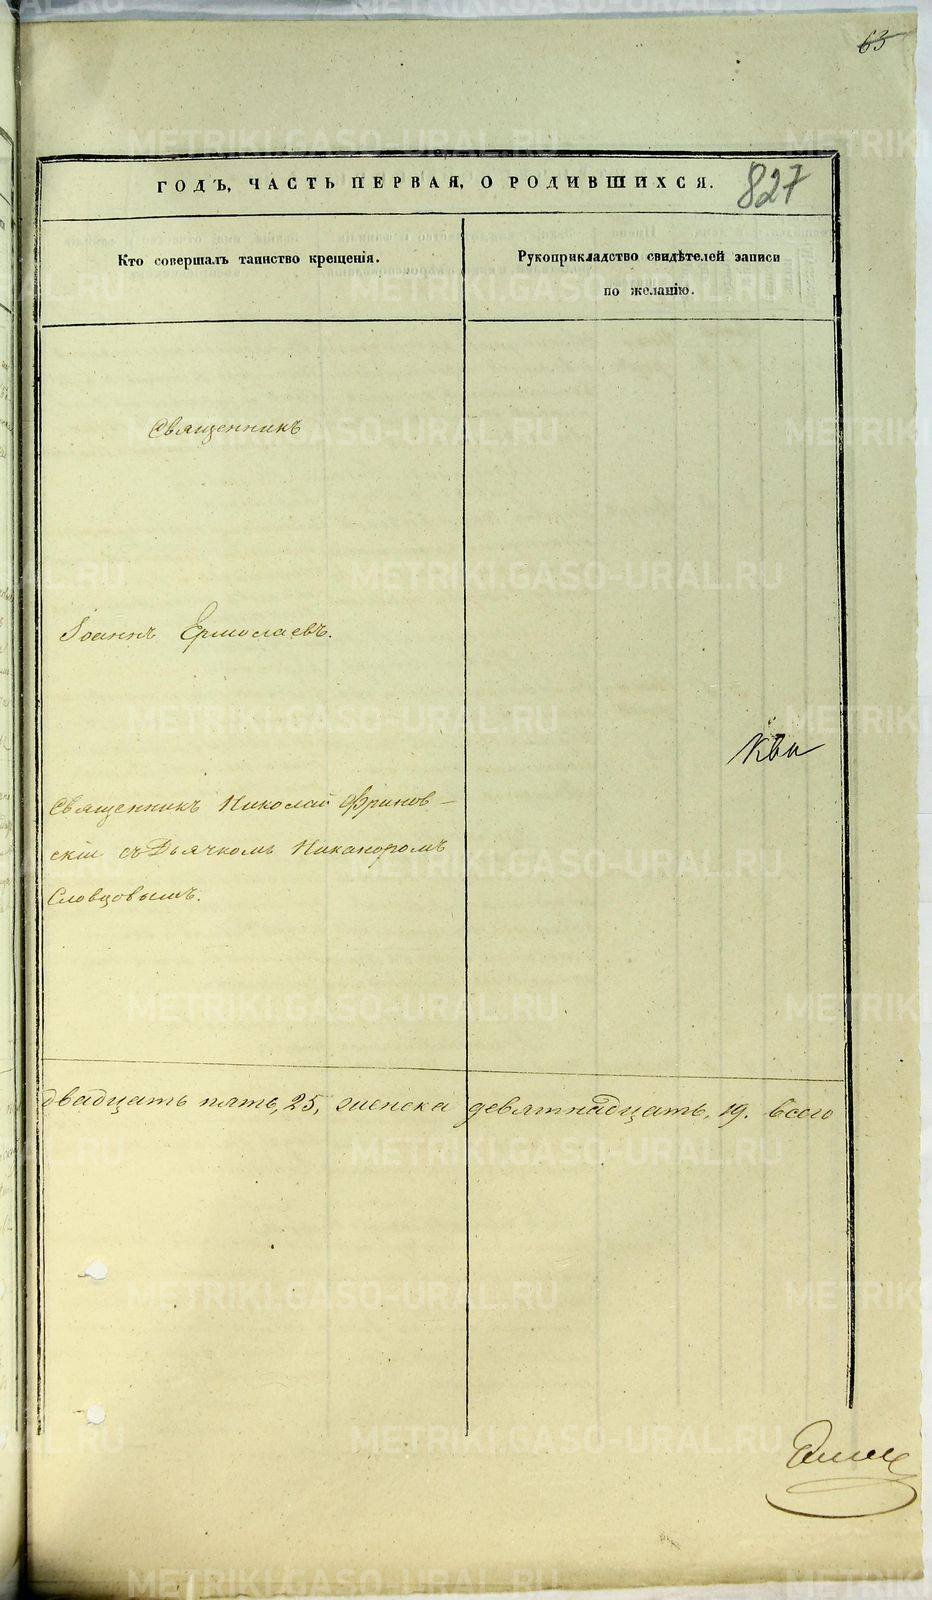 63
ГОДЪ, ЧАСТЬ ПЕРВАЯ, О РОДИВШИХСЯ.
827
Кто совершалъ таинство крещенія.
Рукоприкладство свидѣтелей записи
по желанію.
Священникъ
Іоаннъ Ермолаевъ.
Священникъ Николай Фринов-
скій съ Дьячкомъ Никаноромъ
Словцовымъ.
двадцать пять, 25, женска девятнадцать, 19. всего
METRIKI.GASO-URAL.RU